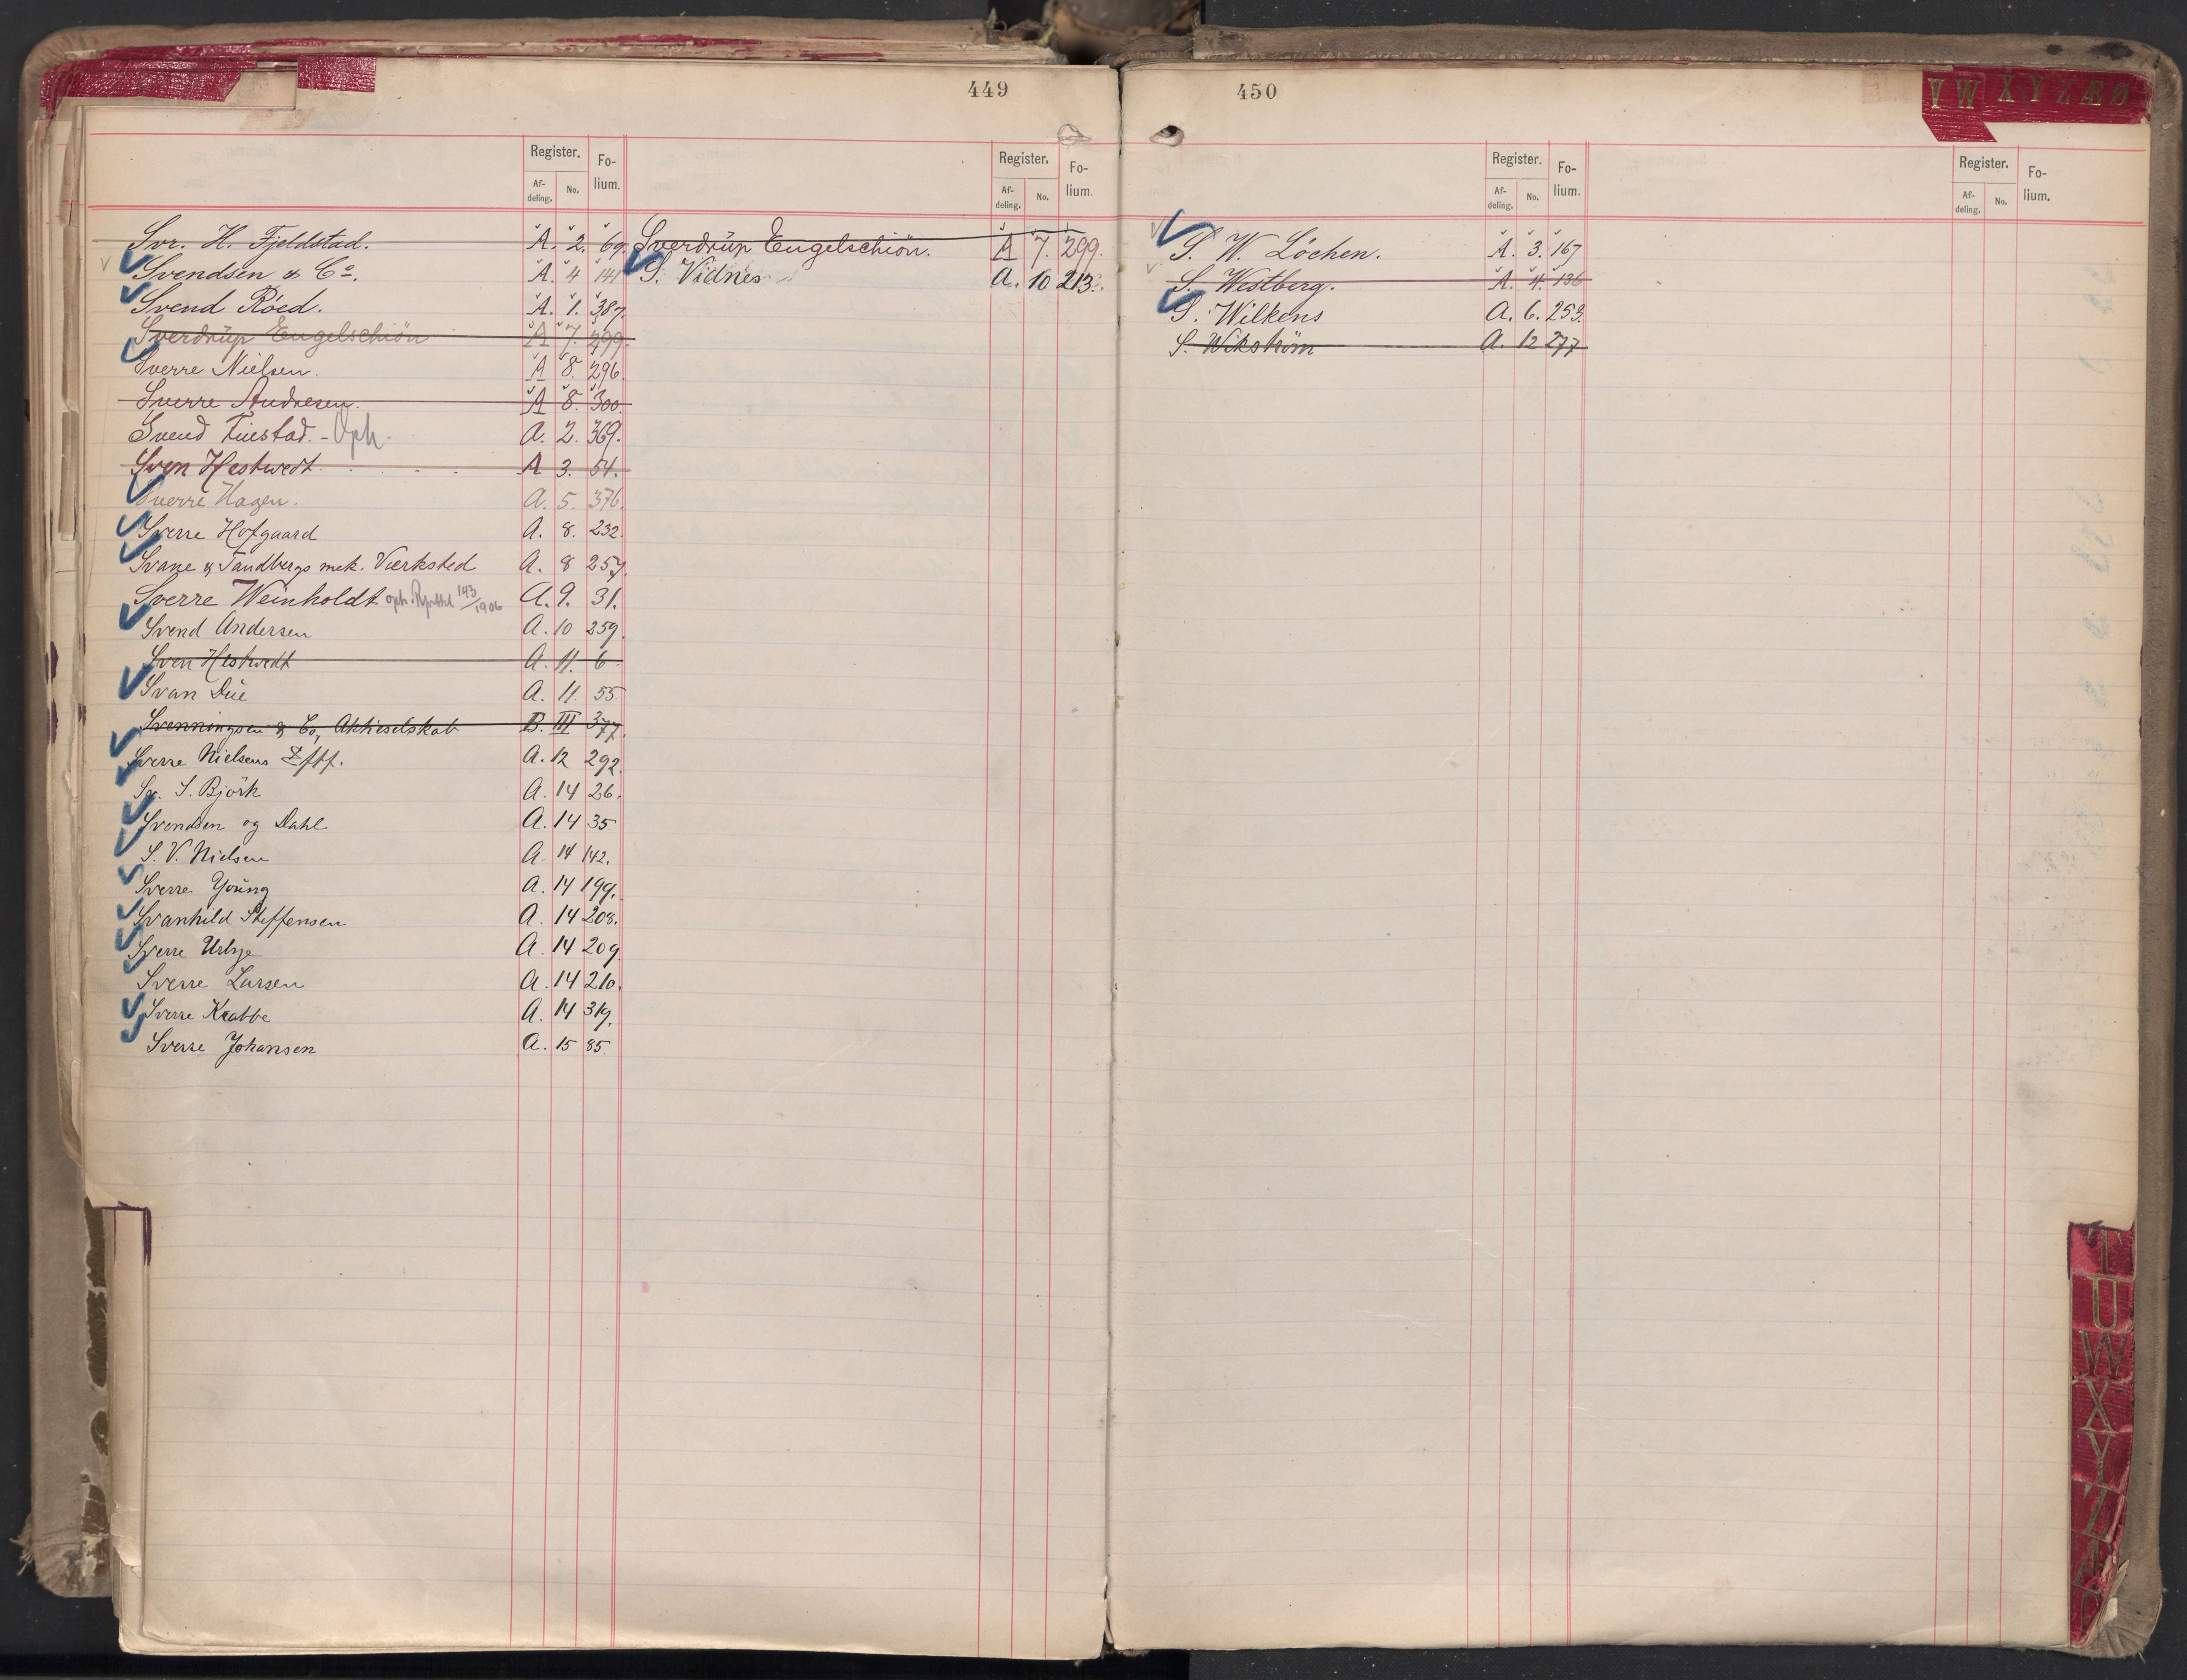 449
Register. Fo-
Af- No. lium.
deling.
Svr. H. Fjeldstad. A. 2. 69.
Svendsen & Co. A. 4 141
Svend Röed. A. 1. 387.
Sverdrup Engelschiön A 7. 299.
Sverre Nielsen. A 8. 296.
Sverre Andresen. A 8. 300.
Svend Fuestad. - Oph. A. 2. 369.
Sven Hestwedt A 3. 54.
Sverre Hagen. A. 5. 376.
Sverre Hofgaard A. 8. 232.
Svane & Tandbergs mek. Værksted A. 8 257.
Sverre Weinholdt oph. 143/1906 A. 9. 31.
Svend Andersen A. 10 259.
Sven Hestwedt A. 11. 6.
Svan Due A. 11. 55
Svenningsen & Co, Aktieselskab B. III 377.
Sverre Nielsens Eftf. A. 12 292.
Sv. S. Björk A. 14 26.
Svendsen og Dahl A. 14 35
S. V. Nielsen A. 14 142.
Sverre Young A. 14 199.
Svanhild Steffensen A. 14 208.
Sverre Urbye A. 14 209
Sverre Larsen A. 14 210.
Sverre Krabbe A. 14 319.
Sverre Johansen A. 15 85
Register. Fo-
Af- No. lium.
deling.
Sverdrup Engelschiön. A 7. 299.
S. Vidnes A. 10 213.
450
Register. Fo-
Af- No. lium.
deling.
S. W. Löchen. A. 3. 167
S. Westberg. A. 4. 136
S. Wilkens A. 6. 253.
S. Wikström A. 12 277
Register. Fo-
Af- No. lium.
deling.
V W X Y Z Æ Ø
T
U
W
X
Y
Z
Æ
Ø